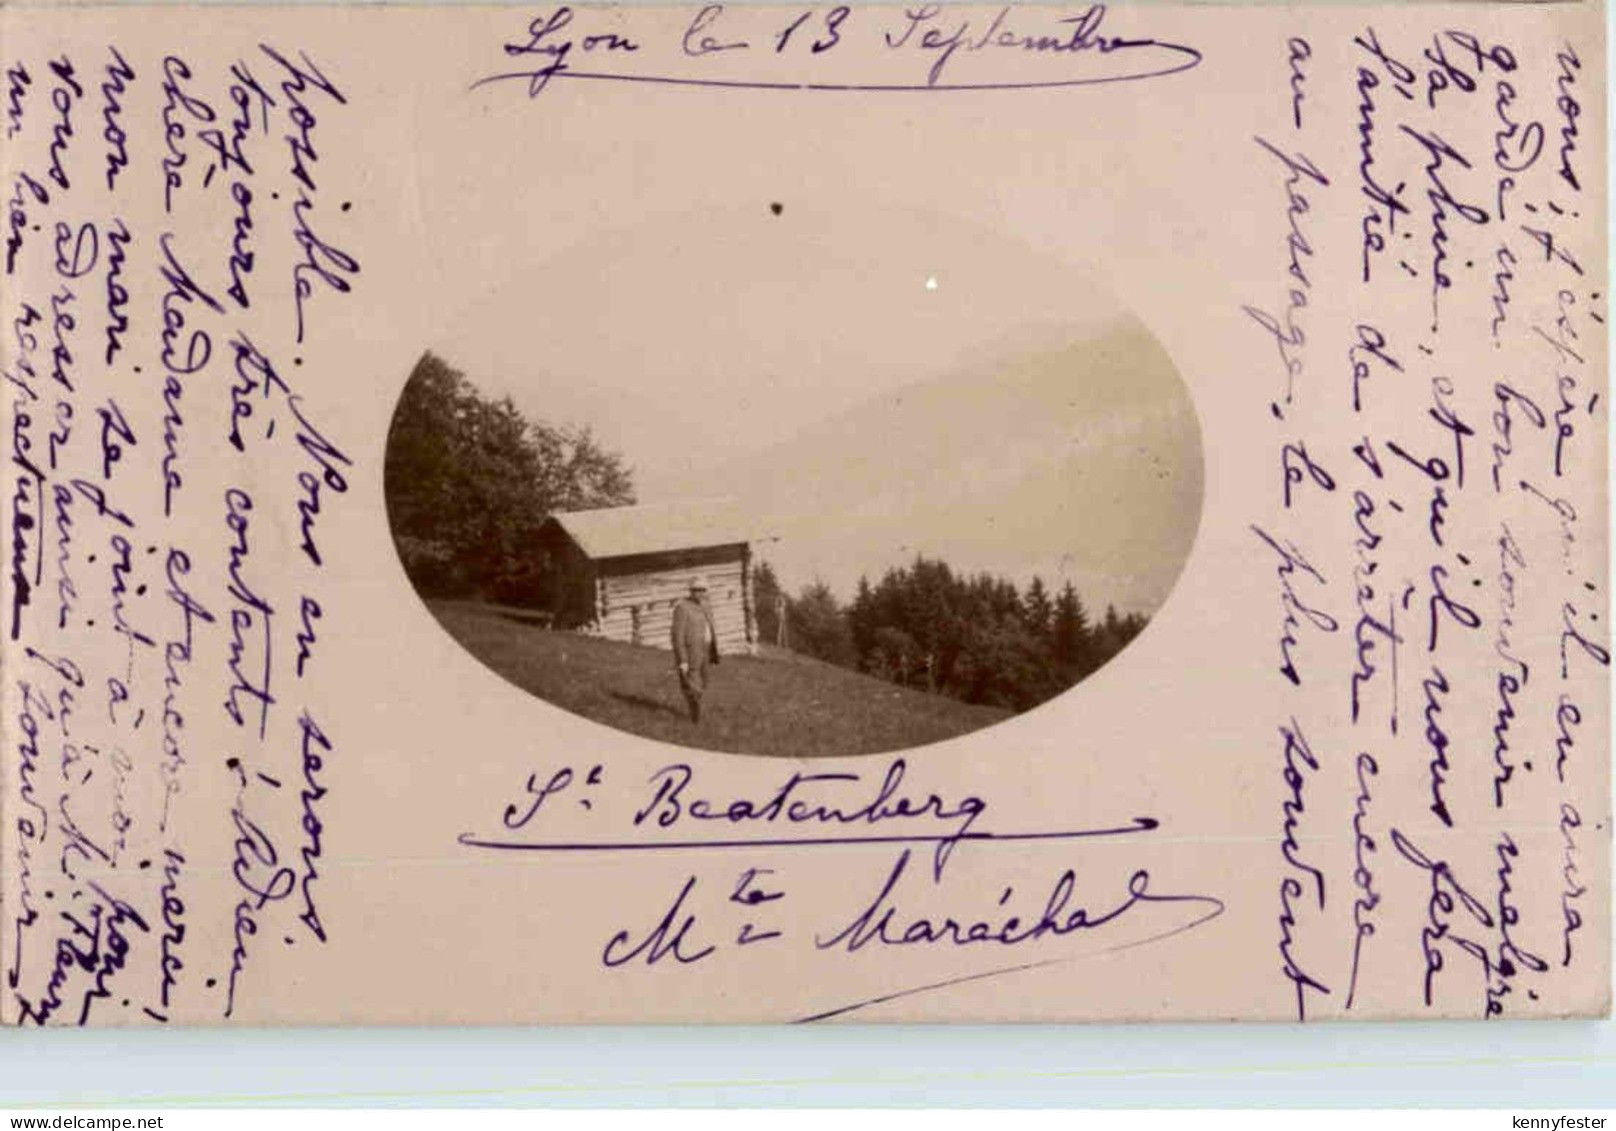 Lyon le 13 Septembre
nous ; j'espère qu'il en aura
gardé un bon souvenir malgré
la pluie, et qu'il nous fera
l'amitié de s'arrêter encore
au passage, le plus souvent
possible. Nous en serons
toujours très contents. Adieu
chère Madame et encore merci,
mon mari se joint à moi pour
vous adresser ainsi qu'à M. Fleury
un bien respectueux souvenir
St Beatenberg
Mte Maréchal
kennyfester